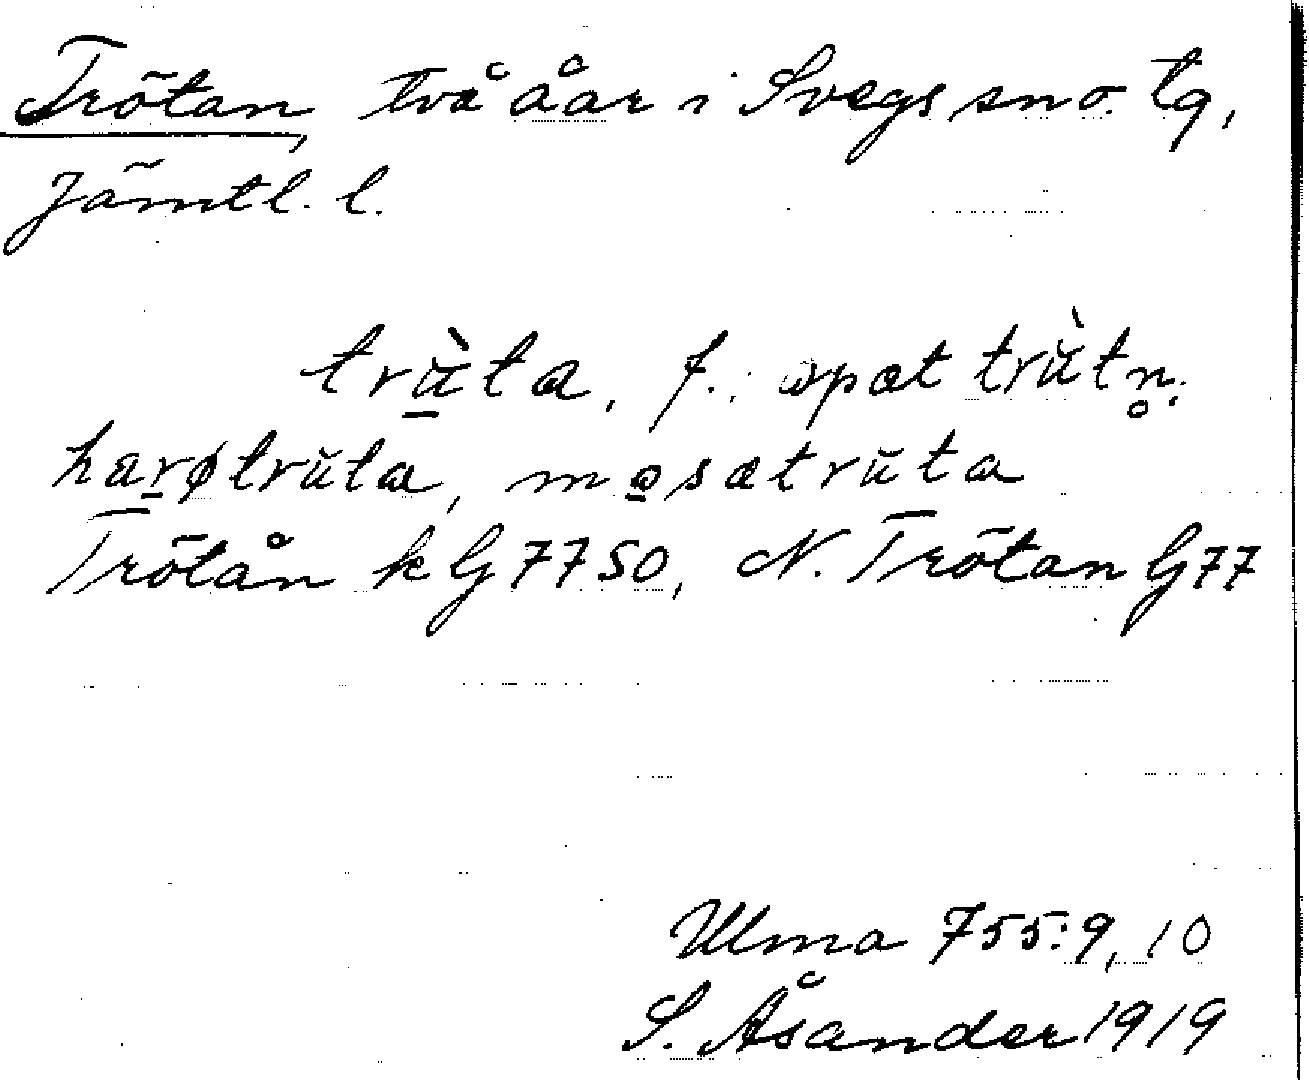 Trötan, två åar i Svegs sn o. tg,
Jämtl. l.
trṳ̀ta, f.; spæt trǜtn̥;
harøtrüta, mosætrüta
Trötån k G 7750, N. Trötan G 77
Ulma 755:9, 10
S. Åsander 1919